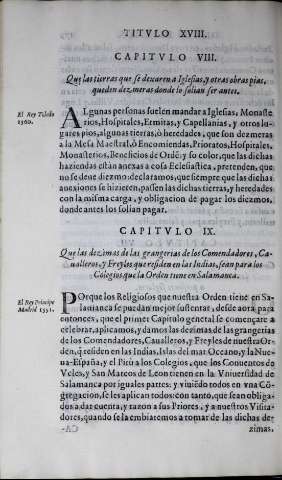 TITVLO XVIII.
CAPITVLO VIII.
Que las tierras que se dexaren a Iglesias, y otras obras pias,
queden dezmeras donde lo solian ser antes.
El Rey Toledo
1560.
ALgunas personas suelen mandar a Iglesias, Monaste
rios, Hospitales, Ermitas, y Capellanias, y otros lu-
gares pios, algunas tierras, ò heredades, que son dezmeras
a la Mesa Maestral, ò Encomiendas, Prioratos, Hospitales,
Monasterios, Beneficios de Ordẽ: y so color, que las dichas
haziendas estàn anexas a cosa Eclesiastica, pretenden, que
no se deue diezmo: declaramos, que siempre que las dichas
anexiones se hizieren, passen las dichas tierras, y heredades
con la misma carga, y obligacion de pagar los diezmos,
donde antes los solian pagar.
CAPITVLO IX.
Que las dezimas de las grangerias de los Comendadores, Ca-
ualleros, y Freyles que residen en las Indias, sean para los
Colegios que la Orden tiene en Salamanca.
El Rey Principe
Madrid 1551.
POrque los Religiosos que nuestra Orden tiene en Sa-
lamanca se puedan mejor sustentar, desde aora para
entonces, que el primer Capitulo general se començare a
celebrar, aplicamos, y damos las dezimas de las grangerias
de los Comendadores, Caualleros, y Freyles de nuestra Or-
den, q̃ residen en las Indias, Islas del mar Oceano, y la Nue-
ua-España, y el Pirù a los Colegios, que los Conuentos de
Veles, y San Marcos de Leon tienen en la Vniuersidad de
Salamanca por iguales partes: y viuiẽdo todos en vna Cõ-
gregacion, se les aplican todos: con tanto, que sean obliga-
dos a dar cuenta, y razon a sus Priores, y a nuestros Visita-
dores, quando se la embiaremos a tomar de las dichas de-
zimas.
CA-